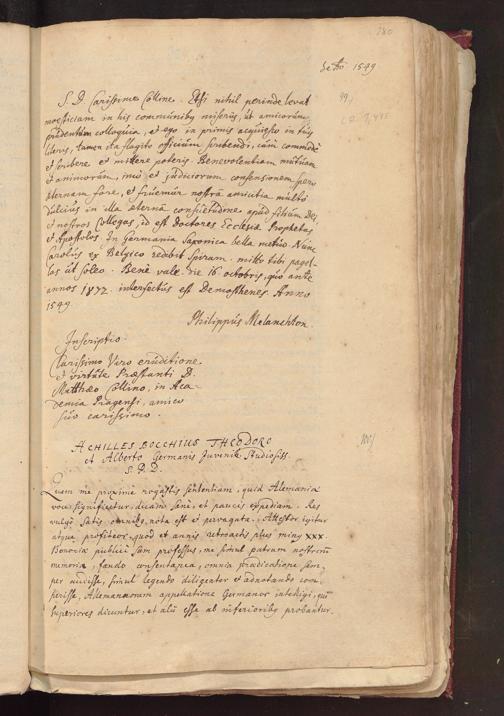 280
8cto 1549
S. D. Carissime Colline. Etsi nihil perinde levat
moesticiam in his communibus miserijs, ut amicorum
prudentum colloquia, et ego in primis acquiesco in tuis
literis, tamen ita flagito officium scribendi, cum commode
et scribere et mittere poteris. Benevolentiam mutuam
et animorum, imo et judiciorum consensionem spero
aeternam fore, et fruemur nostra amicitia multo
dulcius in illa aeterna consuetudine apud filium Dei,
et nostros Collegas, id est Doctores Ecclesiae Prophetas
et Apostolos. In Germania Saxonica bella metuo. Nunc
Carolus ex Belgico redibit Spiram. mitto tibi pagel-
las ut soleo. Bene vale. die 16 octobris, quo ante
annos 1872 interfectus est Demosthenes. Anno
1549.
Philippus Melanchton.
Inscriptio.
Clarissimo Viro eruditione
et virtute Praestanti D.
Matthaeo Collino, in Aca-
demia Pragensi, amico
suo carissimo.
ACHILLES BOCCHIUS THEODORO
et Alberto Germanis Juvenib. Studiosiss.
S. P. D.
Quam me proxime rogastis sententiam, quid Alemania
vocis significetur, dicam sane, et paucis expediam. Res
vulgo satis omnibus nota est et pervagata. Attestor igitur
atque profiteor, quod et annis retroactis plus minus XXX.
Bononiae publice sum professus, me simul patrum nostrorum
memoria, fando consentanea, omnia praedicatione sem-
per audisse, simul legendo diligenter et adnotando com-
perisse, Alemannorum appellatione Germanos intelligi, qui
superiores dicuntur, et alii esse ab inferioribus probantur.